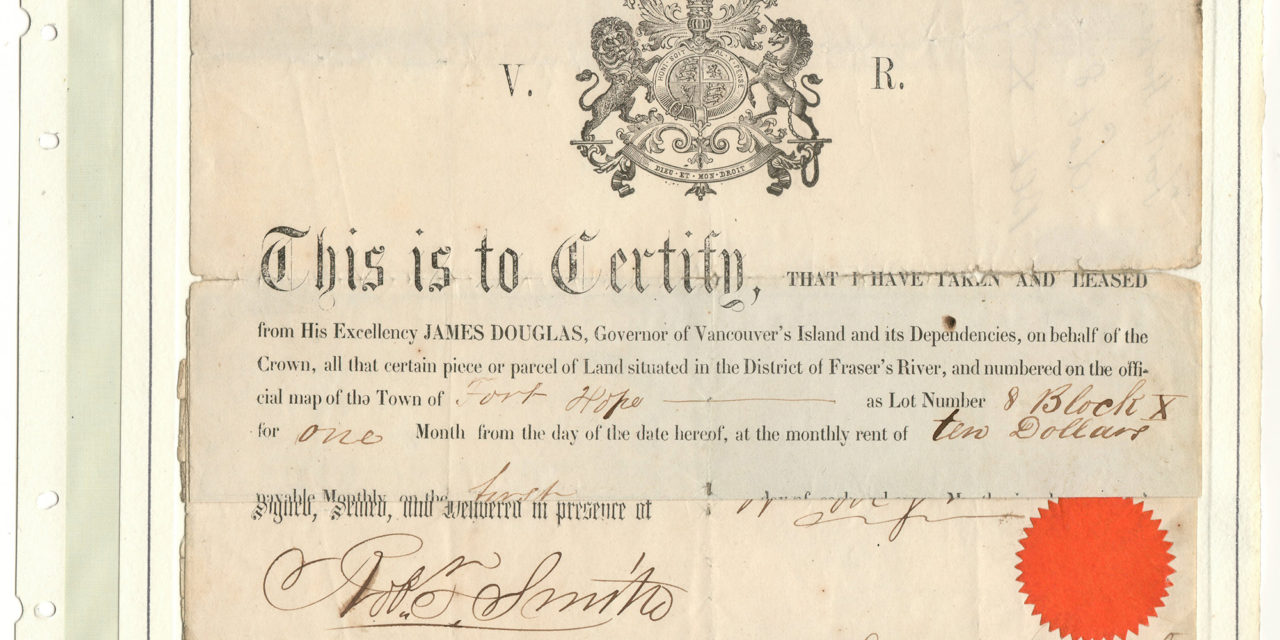 V. R.
HONI SOIT QUI MAL Y PENSE
DIEU·ET·MON·DROIT
This is to Certify, THAT I HAVE TAKEN AND LEASED
from His Excellency JAMES DOUGLAS, Governor of Vancouver's Island and its Dependencies, on behalf of the
Crown, all that certain piece or parcel of Land situated in the District of Fraser's River, and numbered on the offi-
cial map of the Town of Fort Hope as Lot Number 8 Block X
for one Month from the day of the date hereof, at the monthly rent of ten Dollars
payable Monthly, on the first
Signed, Sealed, and Delivered in presence of
Robt. Smith